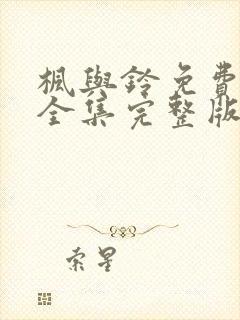 楓與鈴免費
全集完整版
索星